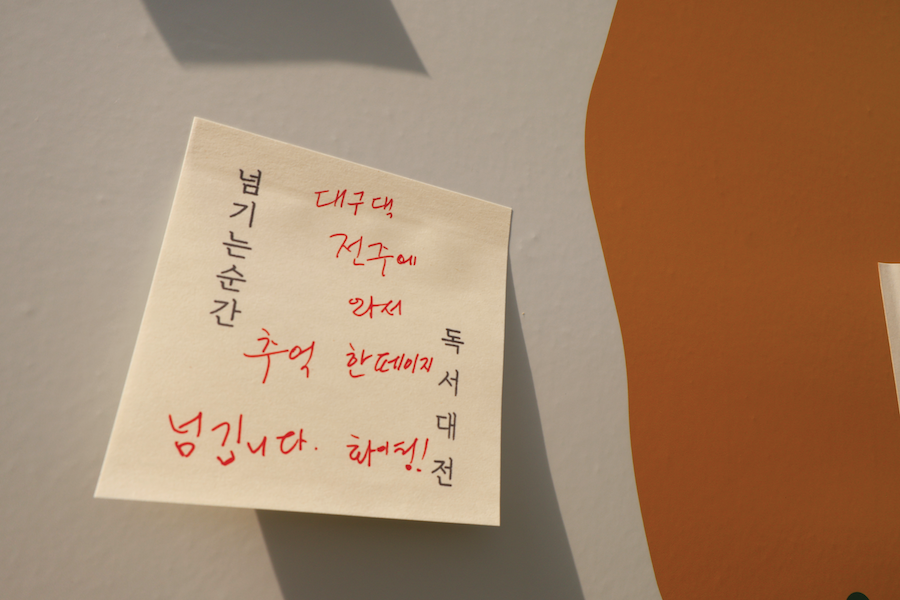 넘기는순간
대구댁
전주에
와서
추억 한페이지
넘깁니다. 화이팅!
독서대전